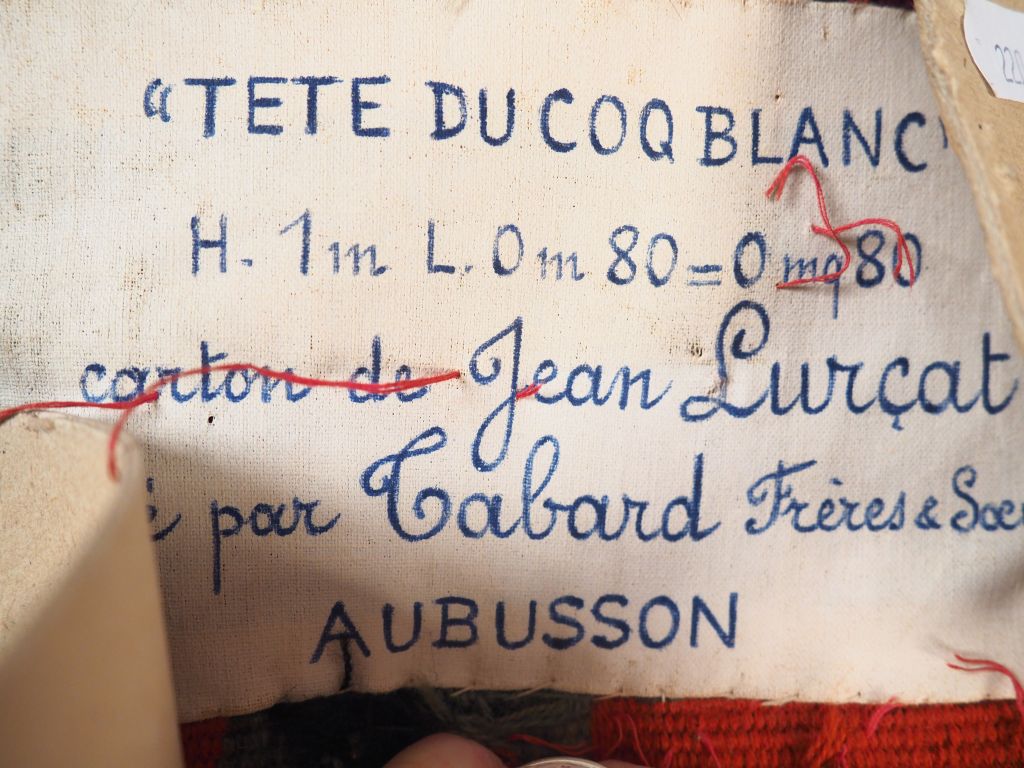 "TETE DU COQ BLANC"
H. 1m L. 0m 80 = 0mq 80
carton de Jean Lurçat
par Tabard Frères &
AUBUSSON